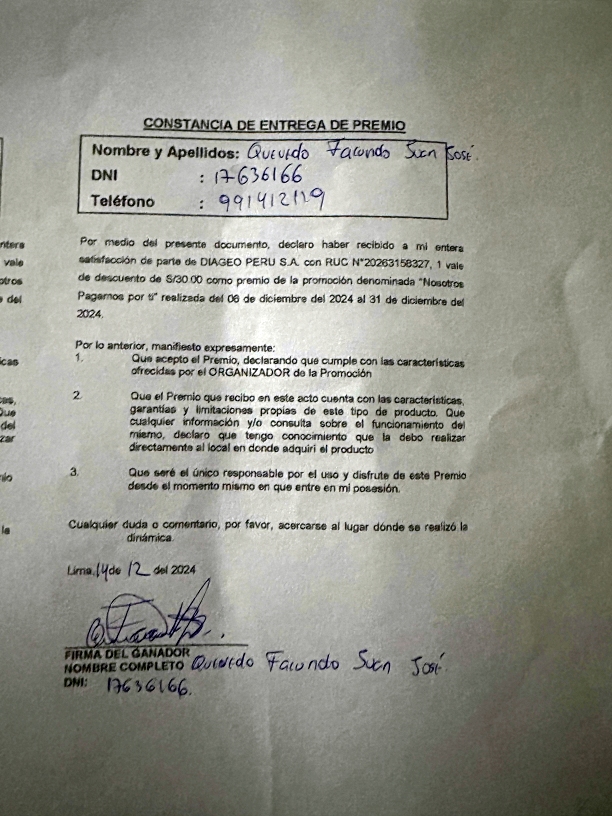 CONSTANCIA DE ENTREGA DE PREMIO
Nombre y Apellidos: Quevedo Facundo Juan José.
DNI : 17636166
Teléfono : 991412119
Por medio del presente documento, declaro haber recibido a mi entera
satisfacción de parte de DIAGEO PERU S.A. con RUC N°20263158327, 1 vale
de descuento de S/30.00 como premio de la promoción denominada "Nosotros
Pagamos por ti" realizada del 06 de diciembre del 2024 al 31 de diciembre del
2024.
Por lo anterior, manifiesto expresamente:
1. Que acepto el Premio, declarando que cumple con las características
ofrecidas por el ORGANIZADOR de la Promoción
2. Que el Premio que recibo en este acto cuenta con las características,
garantías y limitaciones propias de este tipo de producto. Que
cualquier información y/o consulta sobre el funcionamiento del
mismo, declaro que tengo conocimiento que la debo realizar
directamente al local en donde adquirí el producto
3. Que seré el único responsable por el uso y disfrute de este Premio
desde el momento mismo en que entre en mi posesión.
Cualquier duda o comentario, por favor, acercarse al lugar dónde se realizó la
dinámica.
Lima, 14 de 12 del 2024
FIRMA DEL GANADOR
NOMBRE COMPLETO Quevedo Facundo Juan José.
DNI: 17636166.